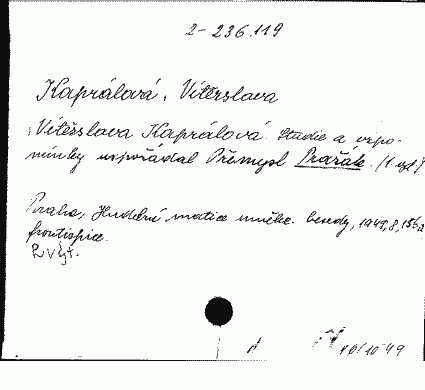 2-236.119
Kaprálová, Vítězslava
Vítězslava Kaprálová. Studie a vzpo-
mínky uspořádal Přemysl Pražák. (1. vyd.)
Praha, Hudební matice umělec. besedy, 1949, 8,
frontispice.
2 výt.
10 49